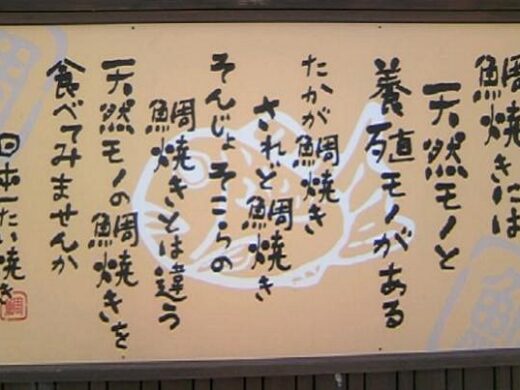 鯛焼きには
天然モノと
養殖モノがある
たかが鯛焼き
されど鯛焼き
そんじょそこらの
鯛焼きとは違う
天然モノの鯛焼きを
食べてみませんか
日本一たい焼き
鯛